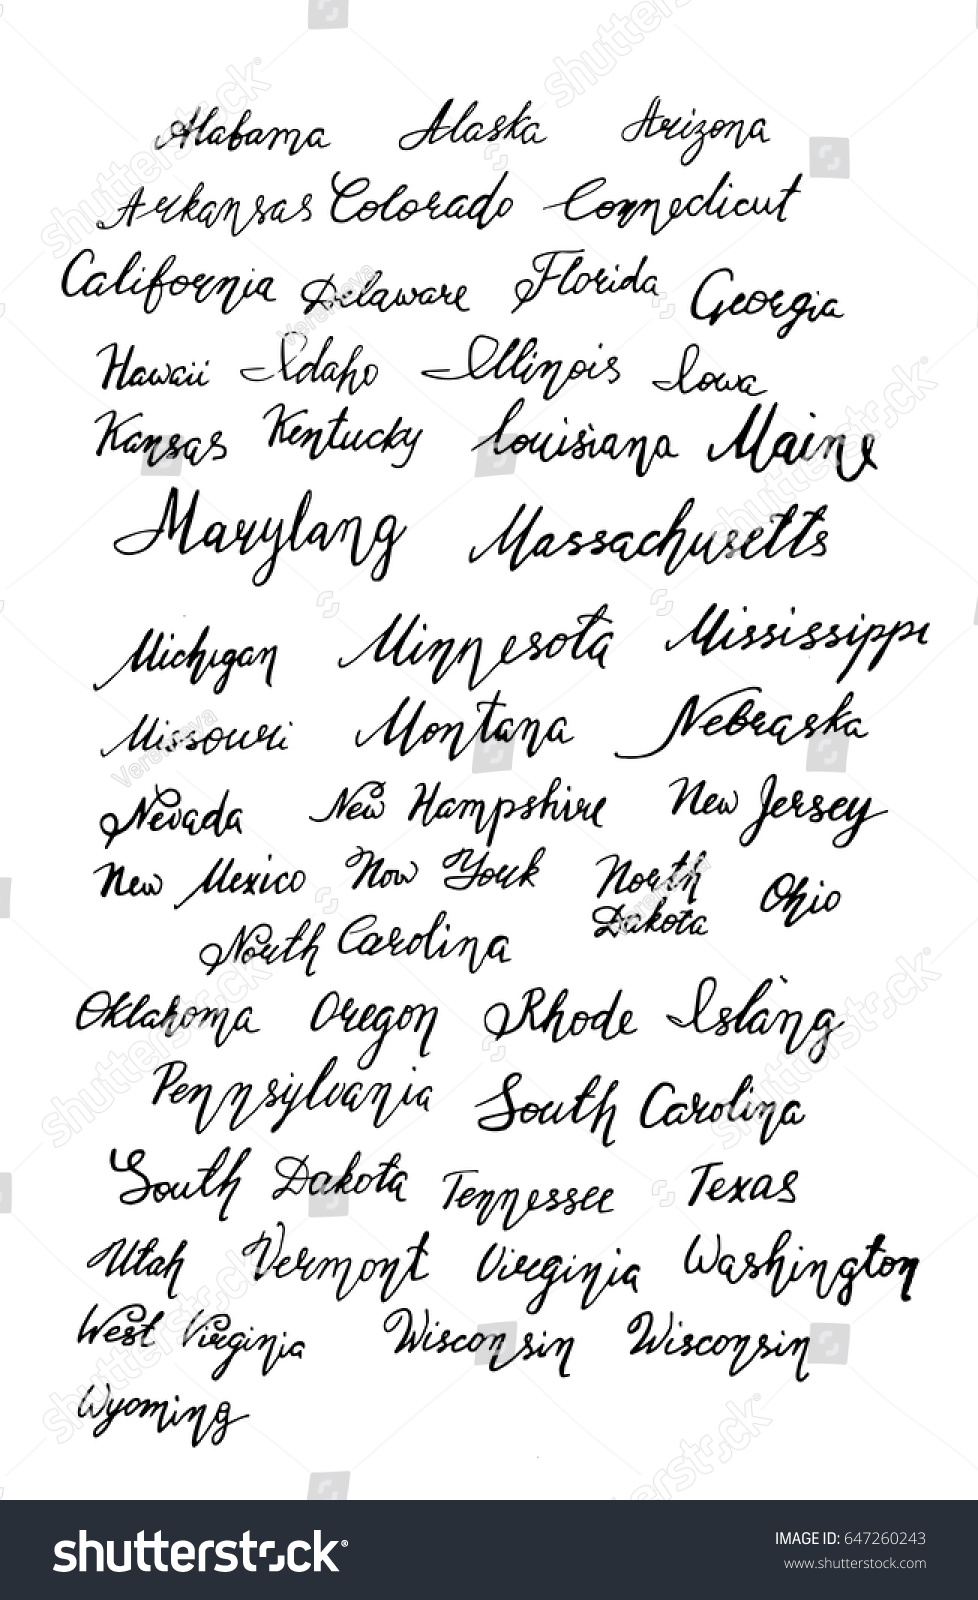 Alabama Alaska Arizona
Arkansas Colorado Connedicut
California Delaware Florida Georgia
Hawaii Idaho Illinois Iowa
Kansas Kentucky Louisiana Maine
Maryland Massachusetts
Michigan Minnesota Mississippi
Missouri Montana Nebraska
Nevada New Hampshire New Jersey
New Mexico Now York North Dakota Ohio
North Carolina
Oklahoma Oregon Rhode Island
Pennsylvania South Carolina
South Dakota Tennessee Texas
Utah Vermont Virginia Washington
West Virginia Wisconsin Wisconsin
Wyoming
shutterstock
IMAGE ID: 647260243
www.shutterstock.com